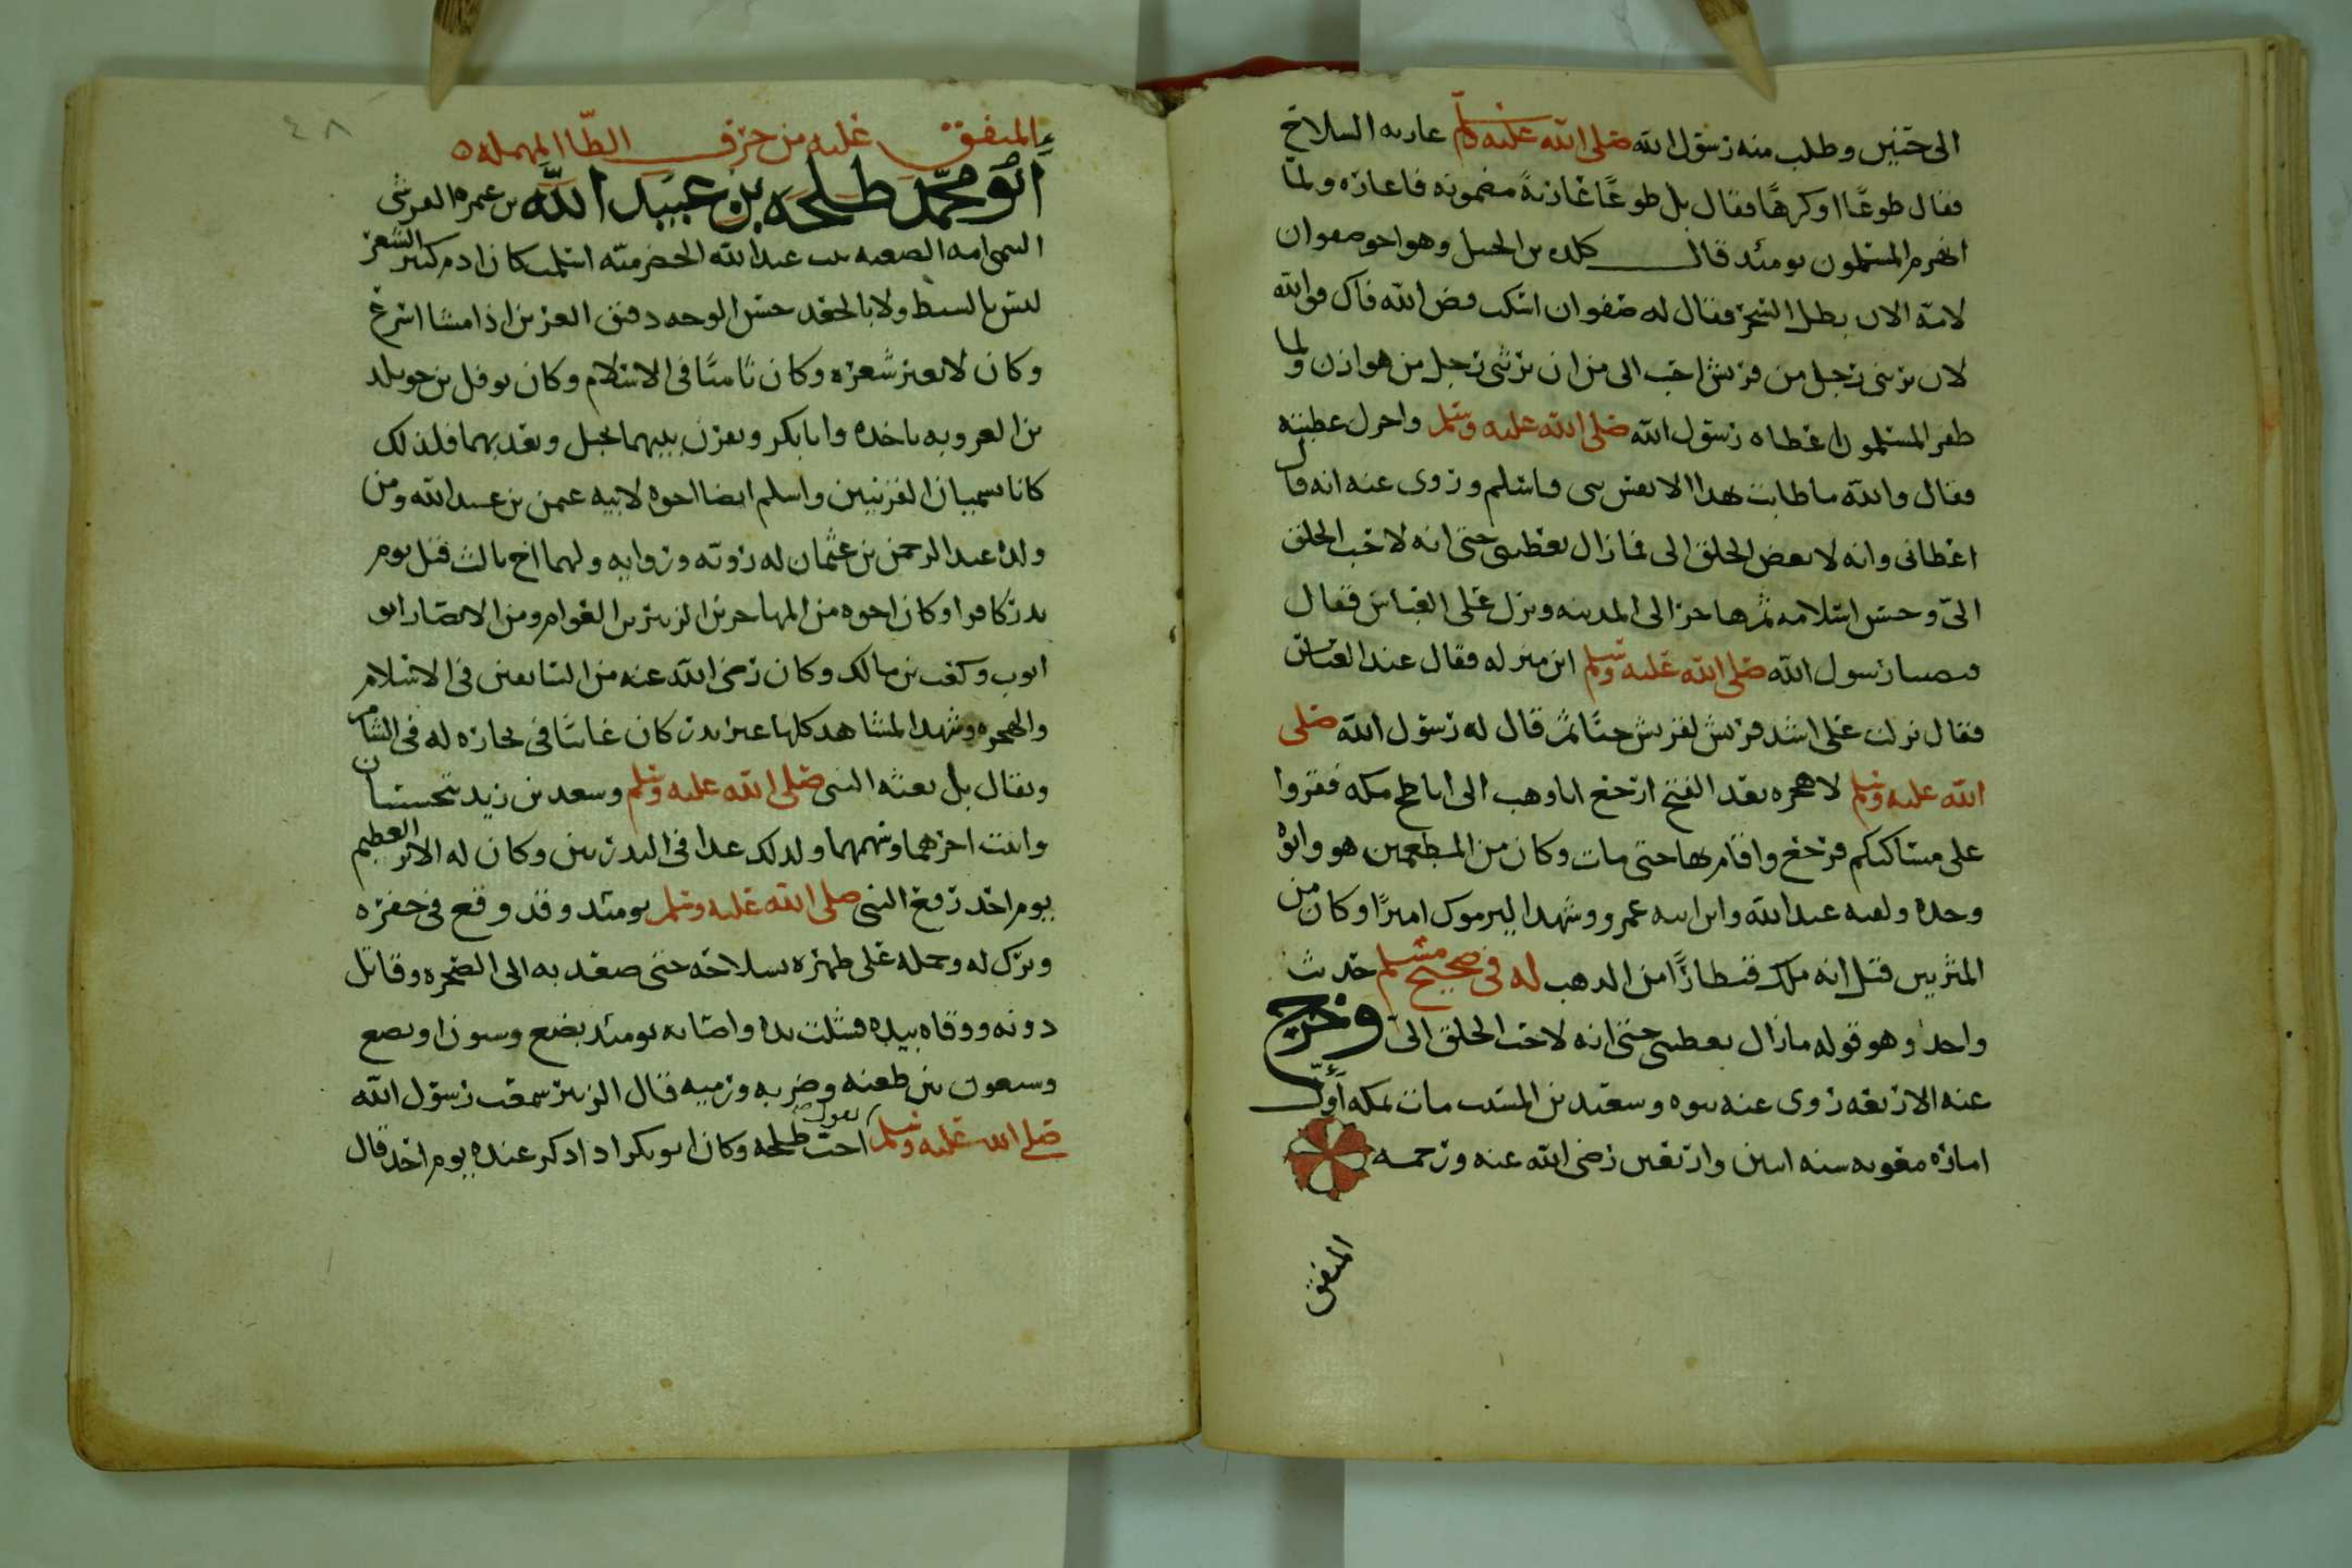 الى حنين وطلب منه رسول الله صلى الله عليه وسلم عاريه السلاح
فقال طوعًا اوكرهًا فقال بل طوعًا عاريةً مضمونه فاعاره ولما
انهزم المسلمون يومئد قال كلده بن الحنبل وهو اخو صفوان
لامه الان بطل السحر فقال له صفوان اسكت فض الله فاك فوالله
لان يربنى رجل من قريش احب الى من ان يربنى رجل من هوازن ولما
ظفر المسلمون اعطاه رسول الله صلى الله عليه وسلم واجزل عطيته
فقال والله ما طابت بهذا الا نفس نبى فاسلم وروى عنه انه قال
اعطانى وانه لابغض الخلق الى فما زال يعطينى حتى انه لاحب الخلق
الىّ وحسن اسلامه ثم هاجر الى المدينه ونزل على العباس فقال
رسول الله صلى الله عليه وسلم اين منزله فقال عند العباس
فقال نزلت على اشد قريش لقريش حبًا ثم قال له رسول الله صلى
الله عليه وسلم لا هجره بعد الفتح ارجع ابا وهب الى اباطح مكه فقروا
على مساكنكم فرجع واقام بها حتى مات وكان من المطعمين هو وابوه
وجده وابنه عبد الله وابن ابنه عمرو وشهد اليرموك اميرًا وكان من
المثريين قيل انه ملك قنطارًا من الدهب له فى صحيح مسلم حديث
واحد وهو قوله مازال يعطينى حتى انه لاحب الخلق الىّ وخرج
عنه الاربعه روى عنه بنوه وسعيد بن المسيب مات بمكه اول
امارة معويه سنه اثنين واربعين رضى الله عنه ورحمه
المتفق
٤٨
المتفق عليه من حرف الطّا المهمله ٥
ابو محمد طلحه بن عبيد الله بن عمره القرشى
التيمى امه الصعبه بنت عبد الله الحضرميه اسلمت كان ادم كثير الشعر
ليس بالسبط ولا بالجعد حسن الوجه دقيق العرنين اذا مشا اسرع
وكان لا يغير شعره وكان ثامنًا فى الاسلام وكان نوفل بن خويلد
بن العدويه ياخده وابا بكر ويقرن بينهما بحبل ويعدبهما فلذلك
كانا يسميان القرينين واسلم ايضا اخوه لابيه عثمن بن عبد الله ومن
ولده عبد الرحمن بن عثمان له رويه وروايه ولهما اخ مالك قتل يوم
بدر كافرا وكان اخوه من المهاجرين الزبير بن العوام ومن الانصار ابو
ايوب وكعب بن مالك وكان رضى الله عنه من السابقين فى الاسلام
والهجره وشهد المشاهد كلها غير بدر كان غائبًا فى تجارة له فى الشام
ويقال بل بعثه النبى صلى الله عليه وسلم وسعد بن زيد يتجسسان
واثبت اجرهما وسهمهما ولدلك عدا فى البدريين وكان له الاثر العظيم
يوم احد رفع النبى صلى الله عليه وسلم يومئد وقد وقع فى حفره
وبرك له وحمله على ظهره بسلاحه حتى صعد به الى الصخره وقاتل
دونه ووقاه بيده فشلت يده واصابه يومئد بضع وستون او بضع
وسبعون بين طعنه وضربه ورميه قال الزبير سمعت رسول الله
صلى الله عليه وسلم يقول اوجب طلحه وكان ابو بكر ادا دكر عنده يوم احد قال